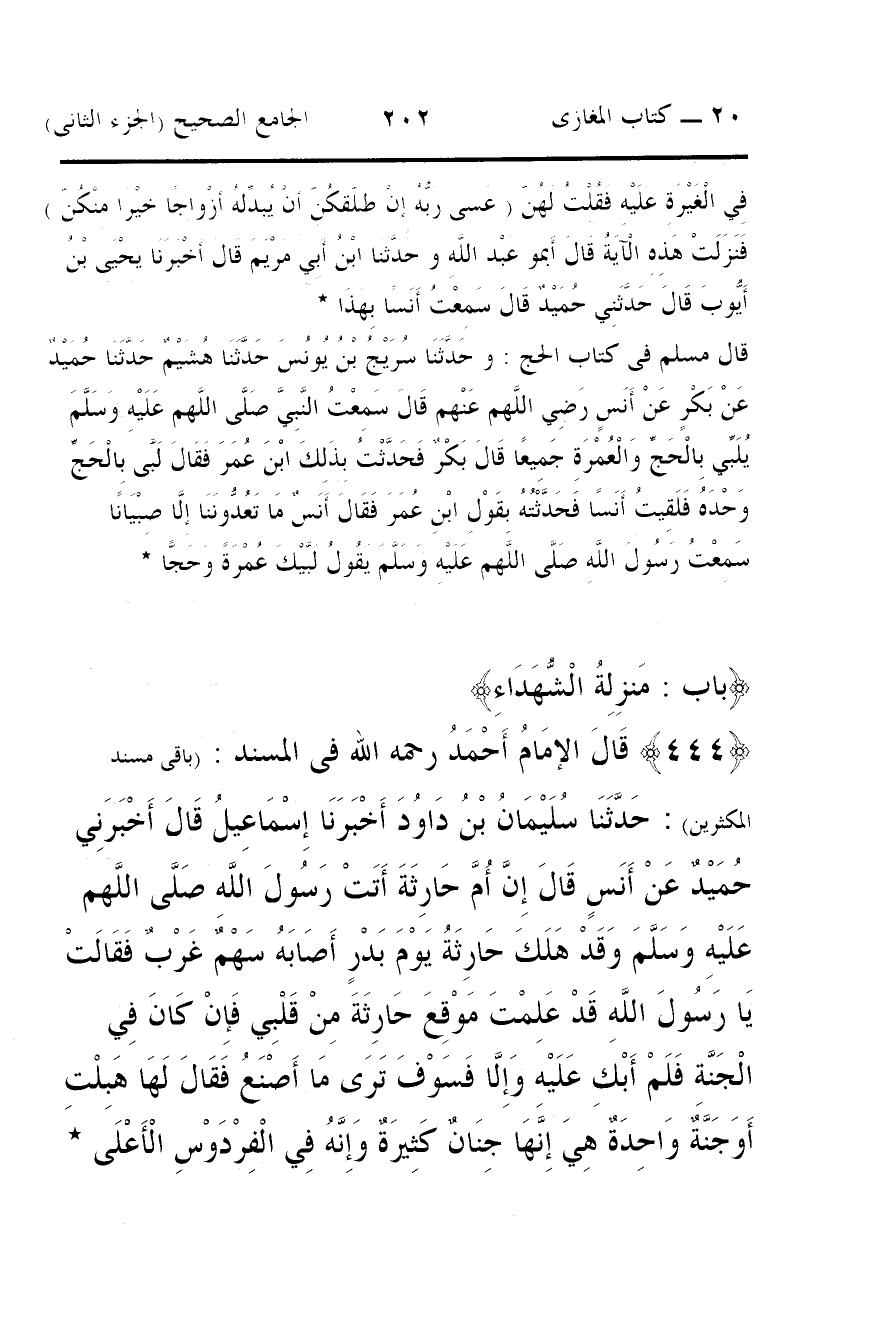 ٢٠ ــ كتاب المغازى ٢٠٢ الجامع الصحيح (الجزء الثانى)
فِي الْغَيْرَةِ عَلَيْهِ فَقُلْتُ لَهُنَّ ( عَسَى رَبُّهُ إِنْ طَلَّقَكُنَّ أَنْ يُبَدِّلَهُ أَزْوَاجًا خَيْرًا مِنْكُنَّ )
فَنَزَلَتْ هَذِهِ الْآيَةُ قَالَ أَبمو عَبْد اللَّهِ و حَدَّثَنَا ابْنُ أَبِي مَرْيَمَ قَالَ أَخْبَرَنَا يَحْيَى بْنُ
أَيُّوبَ قَالَ حَدَّثَنِي حُمَيْدٌ قَالَ سَمِعْتُ أَنَسًا بِهَذَا *
قال مسلم فى كتاب الحج : و حَدَّثَنَا سُرَيْجُ بْنُ يُونُسَ حَدَّثَنَا هُشَيْمٌ حَدَّثَنَا حُمَيْدٌ
عَنْ بَكْرٍ عَنْ أَنَسٍ رَضِي اللَّهم عَنْهم قَالَ سَمِعْتُ النَّبِيَّ صَلَّى اللَّهم عَلَيْهِ وَسَلَّمَ
يُلَبِّي بِالْحَجِّ وَالْعُمْرَةِ جَمِيعًا قَالَ بَكْرٌ فَحَدَّثْتُ بِذَلِكَ ابْنَ عُمَرَ فَقَالَ لَبَّى بِالْحَجِّ
وَحْدَهُ فَلَقِيتُ أَنَسًا فَحَدَّثْتُهُ بِقَوْلِ ابْنِ عُمَرَ فَقَالَ أَنَسٌ مَا تَعُدُّونَنَا إِلَّا صِبْيَانًا
سَمِعْتُ رَسُولَ اللَّهِ صَلَّى اللَّهم عَلَيْهِ وَسَلَّمَ يَقُولُ لَبَّيْكَ عُمْرَةً وَحَجًّا *
﴿باب : مَنزِلةُ الشُّهَدَاءِ﴾
﴿٤٤٤﴾ قَالَ الإمَامُ أَحْمَدُ رحمه الله فى المسند : (باقى مسند
المكثرين) : حَدَّثَنَا سُلَيْمَانُ بْنُ دَاوُدَ أَخْبَرَنَا إِسْمَاعِيلُ قَالَ أَخْبَرَنِي
حُمَيْدٌ عَنْ أَنَسٍ قَالَ إِنَّ أُمَّ حَارِثَةَ أَتَتْ رَسُولَ اللَّهِ صَلَّى اللَّهم
عَلَيْهِ وَسَلَّمَ وَقَدْ هَلَكَ حَارِثَةُ يَوْمَ بَدْرٍ أَصَابَهُ سَهْمٌ غَرْبٌ فَقَالَتْ
يَا رَسُولَ اللَّهِ قَدْ عَلِمْتَ مَوْقِعَ حَارِثَةَ مِنْ قَلْبِي فَإِنْ كَانَ فِي
الْجَنَّةِ فَلَمْ أَبْكِ عَلَيْهِ وَإِلَّا فَسَوْفَ تَرَى مَا أَصْنَعُ فَقَالَ لَهَا هَبِلْتِ
أَوَجَنَّةٌ وَاحِدَةٌ هِيَ إِنَّهَا جِنَانٌ كَثِيرَةٌ وَإِنَّهُ فِي الْفِرْدَوْسِ الْأَعْلَى *